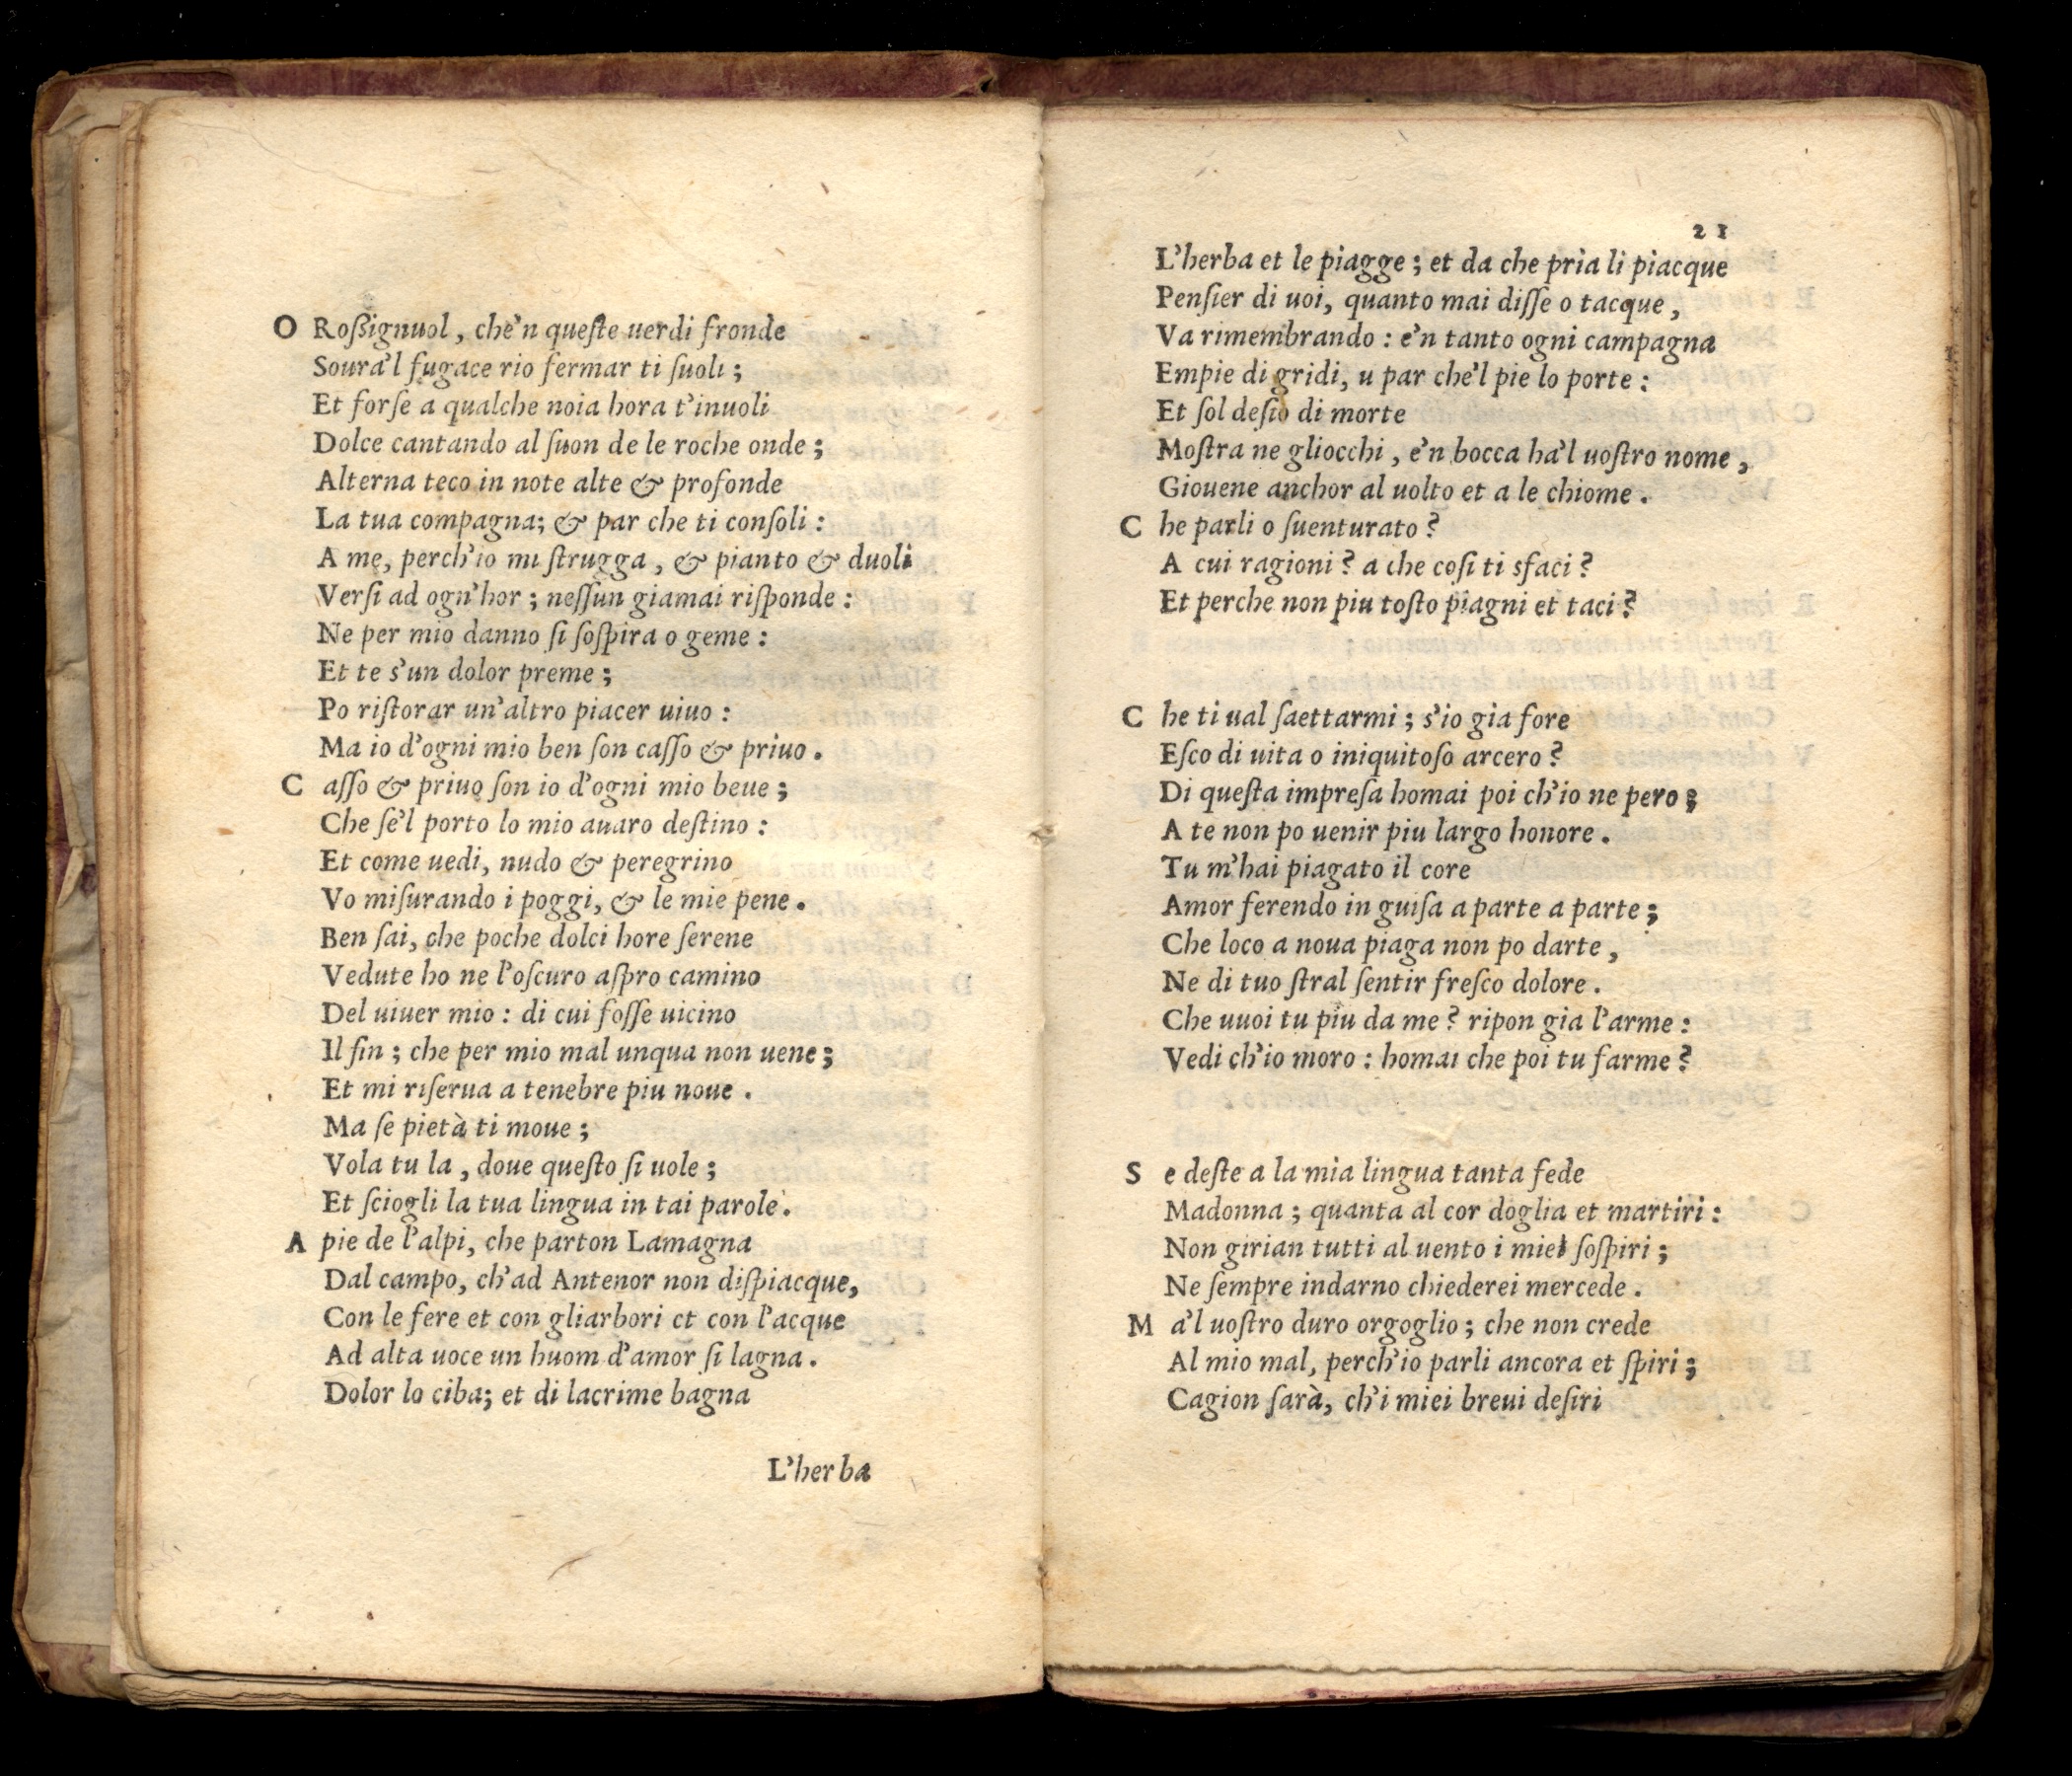 O Roßignuol, che'n queſte uerdi fronde
Soura'l fugace rio fermar ti ſuoli;
Et forſe a qualche noia hora t'inuoli
Dolce cantando al ſuon de le roche onde;
Alterna teco in note alte & profonde
La tua compagna; & par che ti conſoli:
A me, perch'io mi ſtrugga, & pianto & duoli
Verſi ad ogn'hor; neſſun giamai riſponde:
Ne per mio danno ſi ſoſpira o geme:
Et te s'un dolor preme;
Po riſtorar un'altro piacer uiuo:
Ma io d'ogni mio ben ſon caſſo & priuo.
C aſſo & priuo ſon io d'ogni mio beue;
Che ſe'l porto lo mio auaro deſtino:
Et come uedi, nudo & peregrino
Vo miſurando i poggi, & le mie pene.
Ben ſai, che poche dolci hore ſerene
Vedute ho ne l'oſcuro aſpro camino
Del uiuer mio: di cui foſſe uicino
Il fin; che per mio mal unqua non uene;
Et mi riſerua a tenebre piu noue.
Ma ſe pietà ti moue;
Vola tu la, doue queſto ſi uole;
Et ſciogli la tua lingua in tai parole.
A pie de l'alpi, che parton Lamagna
Dal campo, ch'ad Antenor non diſpiacque,
Con le fere et con gliarbori et con l'acque
Ad alta uoce un huom d'amor ſi lagna.
Dolor lo ciba; et di lacrime bagna
L'herba
21
L'herba et le piagge; et da che pria li piacque
Penſier di uoi, quanto mai diſſe o tacque,
Va rimembrando: e'n tanto ogni campagna
Empie di gridi, u par che'l pie lo porte:
Et ſol deſio di morte
Moſtra ne gliocchi, e'n bocca ha'l uoſtro nome,
Giouene anchor al uolto et a le chiome.
C he parli o ſuenturato?
A cui ragioni? a che coſi ti sfaci?
Et perche non piu toſto piagni et taci?
C he ti ual ſaettarmi; s'io gia fore
Eſco di uita o iniquitoſo arcero?
Di queſta impreſa homai poi ch'io ne pero;
A te non po uenir piu largo honore.
Tu m'hai piagato il core
Amor ferendo in guiſa a parte a parte;
Che loco a noua piaga non po darte,
Ne di tuo ſtral ſentir freſco dolore.
Che uuoi tu piu da me? ripon gia l'arme:
Vedi ch'io moro: homai che poi tu farme?
S e deſte a la mia lingua tanta fede
Madonna; quanta al cor doglia et martiri:
Non girian tutti al uento i miei ſoſpiri;
Ne ſempre indarno chiederei mercede.
M a'l uoſtro duro orgoglio; che non crede
Al mio mal, perch'io parli ancora et ſpiri;
Cagion ſarà, ch'i miei breui deſiri